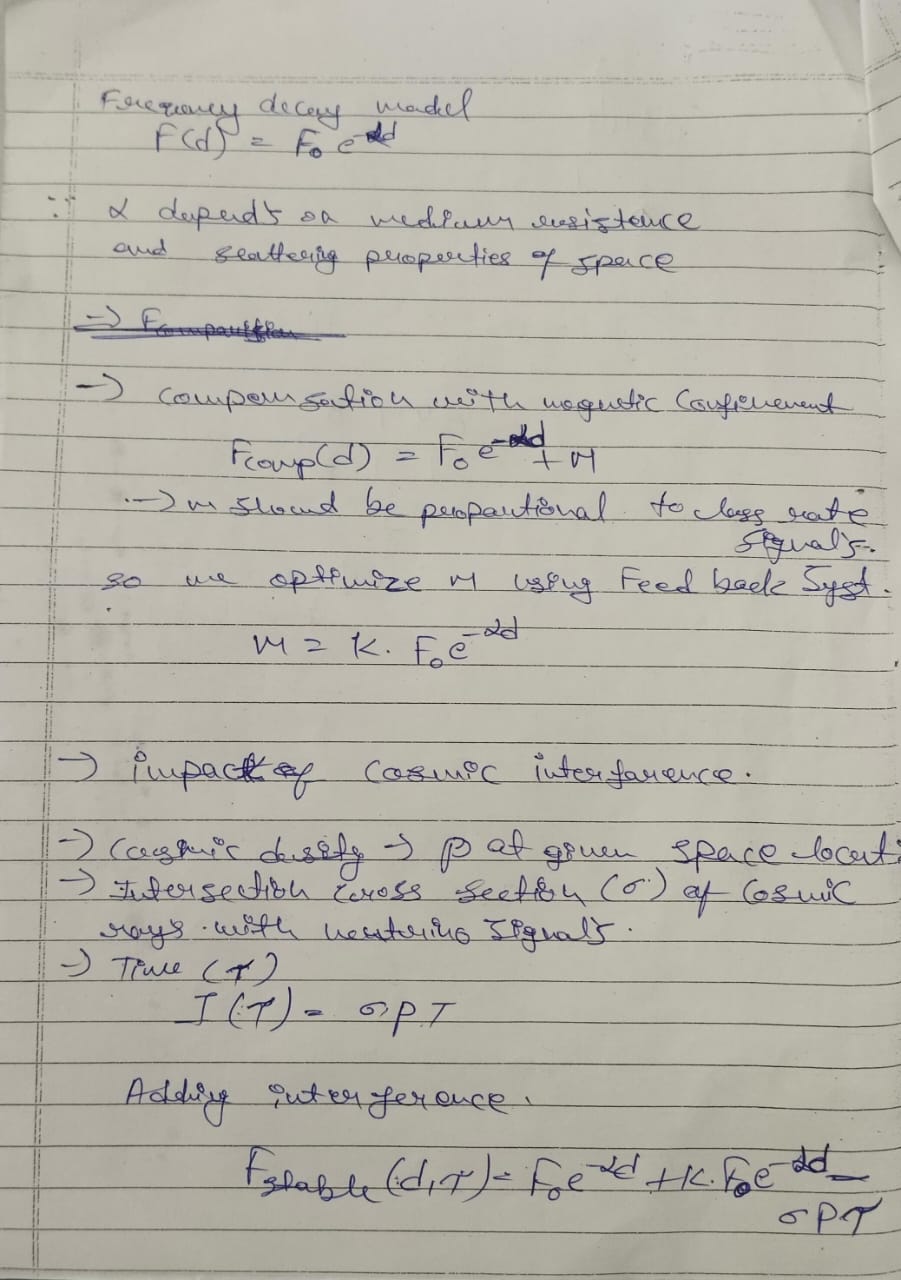 Frequency decay model
F(d) = F₀ e^-αd
∵ α depends on medium resistance
and scattering properties of space
→ compensation with magnetic Confinement
Fcomp(d) = F₀e^-αd + M
.→ m should be propautional to loss rate
signals.
so we optimize M using Feed back Syst.
M = K. F₀e^-αd
→ impact of Cosmic interfarence.
→ Cosmic dusity → ρ at given space locati
→ Intersection Cross Section (σ) of Cosmic
rays with neutrino signals.
→ Time (T)
I(T) = σρT
Adding interference.
Fstable (d,T) = F₀e^-αd + K.F₀e^-αd -
σρT